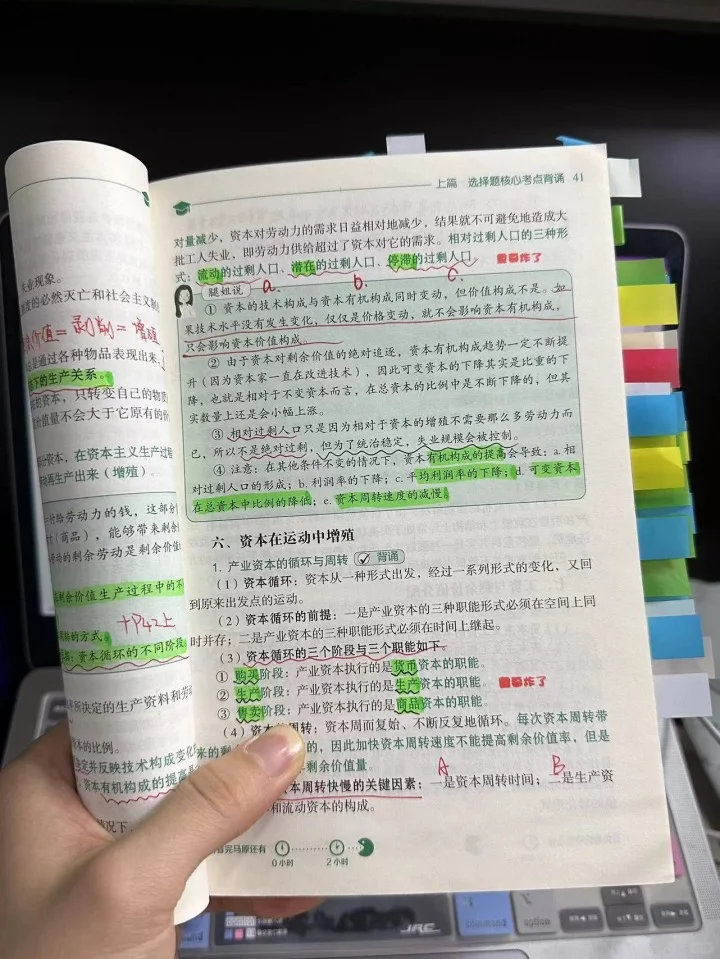 上篇 选择题核心考点背诵 41
对量减少，资本对劳动力的需求日益相对地减少，结果就不可避免地造成大
批工人失业，即劳动力供给超过了资本对它的需求。相对过剩人口的三种形
式：流动的过剩人口、潜在的过剩人口、停滞的过剩人口。
a. b. c.
腿姐说
① 资本的技术构成与资本有机构成同时变动，但价值构成不是。如
果技术水平没有发生变化，仅仅是价格变动，就不会影响资本有机构成，
只会影响资本价值构成。
② 由于资本对剩余价值的绝对追逐，资本有机构成趋势一定不断提
升（因为资本家一直在改进技术），因此可变资本的下降其实是比重的下
降，也就是相对于不变资本而言，在总资本的比例中是不断下降的，但其
实数量上还是会小幅上涨。
③ 相对过剩人口只是因为相对于资本的增殖不需要那么多劳动力而
已，所以不是绝对过剩，但为了统治稳定，失业规模会被控制。
④ 注意：在其他条件不变的情况下，资本有机构成的提高会导致：a. 相
对过剩人口的形成；b. 利润率的下降；c. 平均利润率的下降；d. 可变资本
在总资本中比例的降低；e. 资本周转速度的减慢。
六、资本在运动中增殖
1. 产业资本的循环与周转 背诵
（1）资本循环：资本从一种形式出发，经过一系列形式的变化，又回
到原来出发点的运动。
（2）资本循环的前提：一是产业资本的三种职能形式必须在空间上同
时并存；二是产业资本的三种职能形式必须在时间上继起。
（3）资本循环的三个阶段与三个职能如下。
① 购买阶段：产业资本执行的是货币资本的职能。
② 生产阶段：产业资本执行的是生产资本的职能。
③ 售卖阶段：产业资本执行的是商品资本的职能。
（4）资本 周转：资本周而复始、不断反复地循环。每次资本周转带
来的剩 的，因此加快资本周转速度不能提高剩余价值率，但是
剩余价值量。
A B
资本周转快慢的关键因素：一是资本周转时间；二是生产资
和流动资本的构成。
完马原还有 0 小时 2 小时
失业现象。
度的必然灭亡和社会主义的
价值＝剥削＝增殖
是通过各种物品表现出来，
下的生产关系。
的资本，只转变自己的物质
价值量不会大于它原有的价
部分资本，在资本主义生产过程
再生产出来（增殖）。
付给劳动力的钱，这部分
（商品），能够带来剩余
的剩余劳动是剩余价值
剩余价值生产过程中的不
+P42上
的方式。
资本循环的不同阶段
所决定的生产资料和劳动
本的比例。
定并反映技术构成变化
资本有机构成的提高
情况下
JRC
command
option